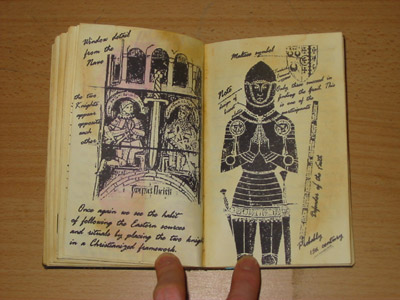 Window detail
from the
Nave
the two
Knights
appear
opposite
each
other
Once again we see the habit
of following the Eastern sources
and rituals by placing the two knights
in a Christianized framework.
symbol
Note
Only those
finding the Grail. This
is one of the
Defender of the
Probably
13th century